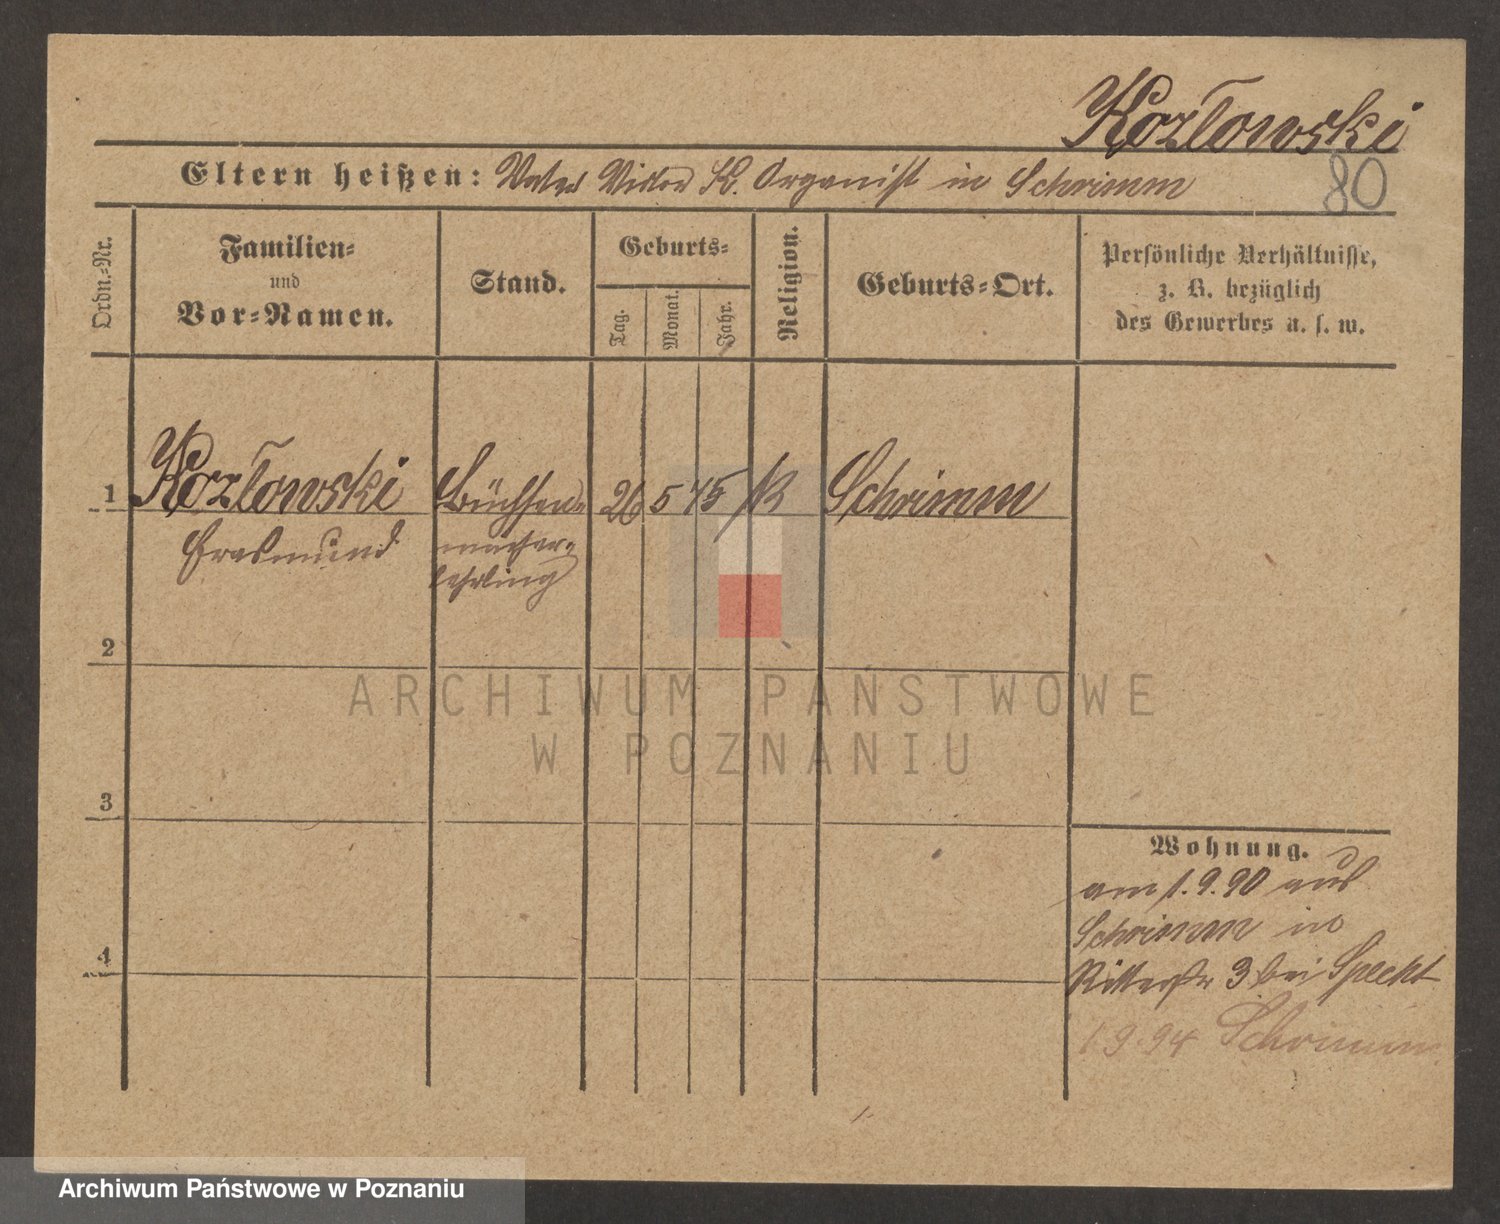 Kozlowski
Eltern heißen: Vater Victor K. Organist in Schrimm
80
Ordn.-Nr.
Familien-
und
Vor-Namen.
Stand.
Geburts-
Tag.
Monat.
Jahr.
Religion.
Geburts-Ort.
Persönliche Verhältnisse,
z. B. bezüglich
des Gewerbes u. s. w.
1 Kozlowski Büchsen- 26 5 75 K Schrimm
Erasmund macher-
lehrling
2
3
4
Wohnung.
am 1.9.90 aus
Schrimm in
Ritterstr 3 bei Specht
1.9.94 Schrimm
ARCHIWUM PAŃSTWOWE
W POZNANIU
Archiwum Państwowe w Poznaniu